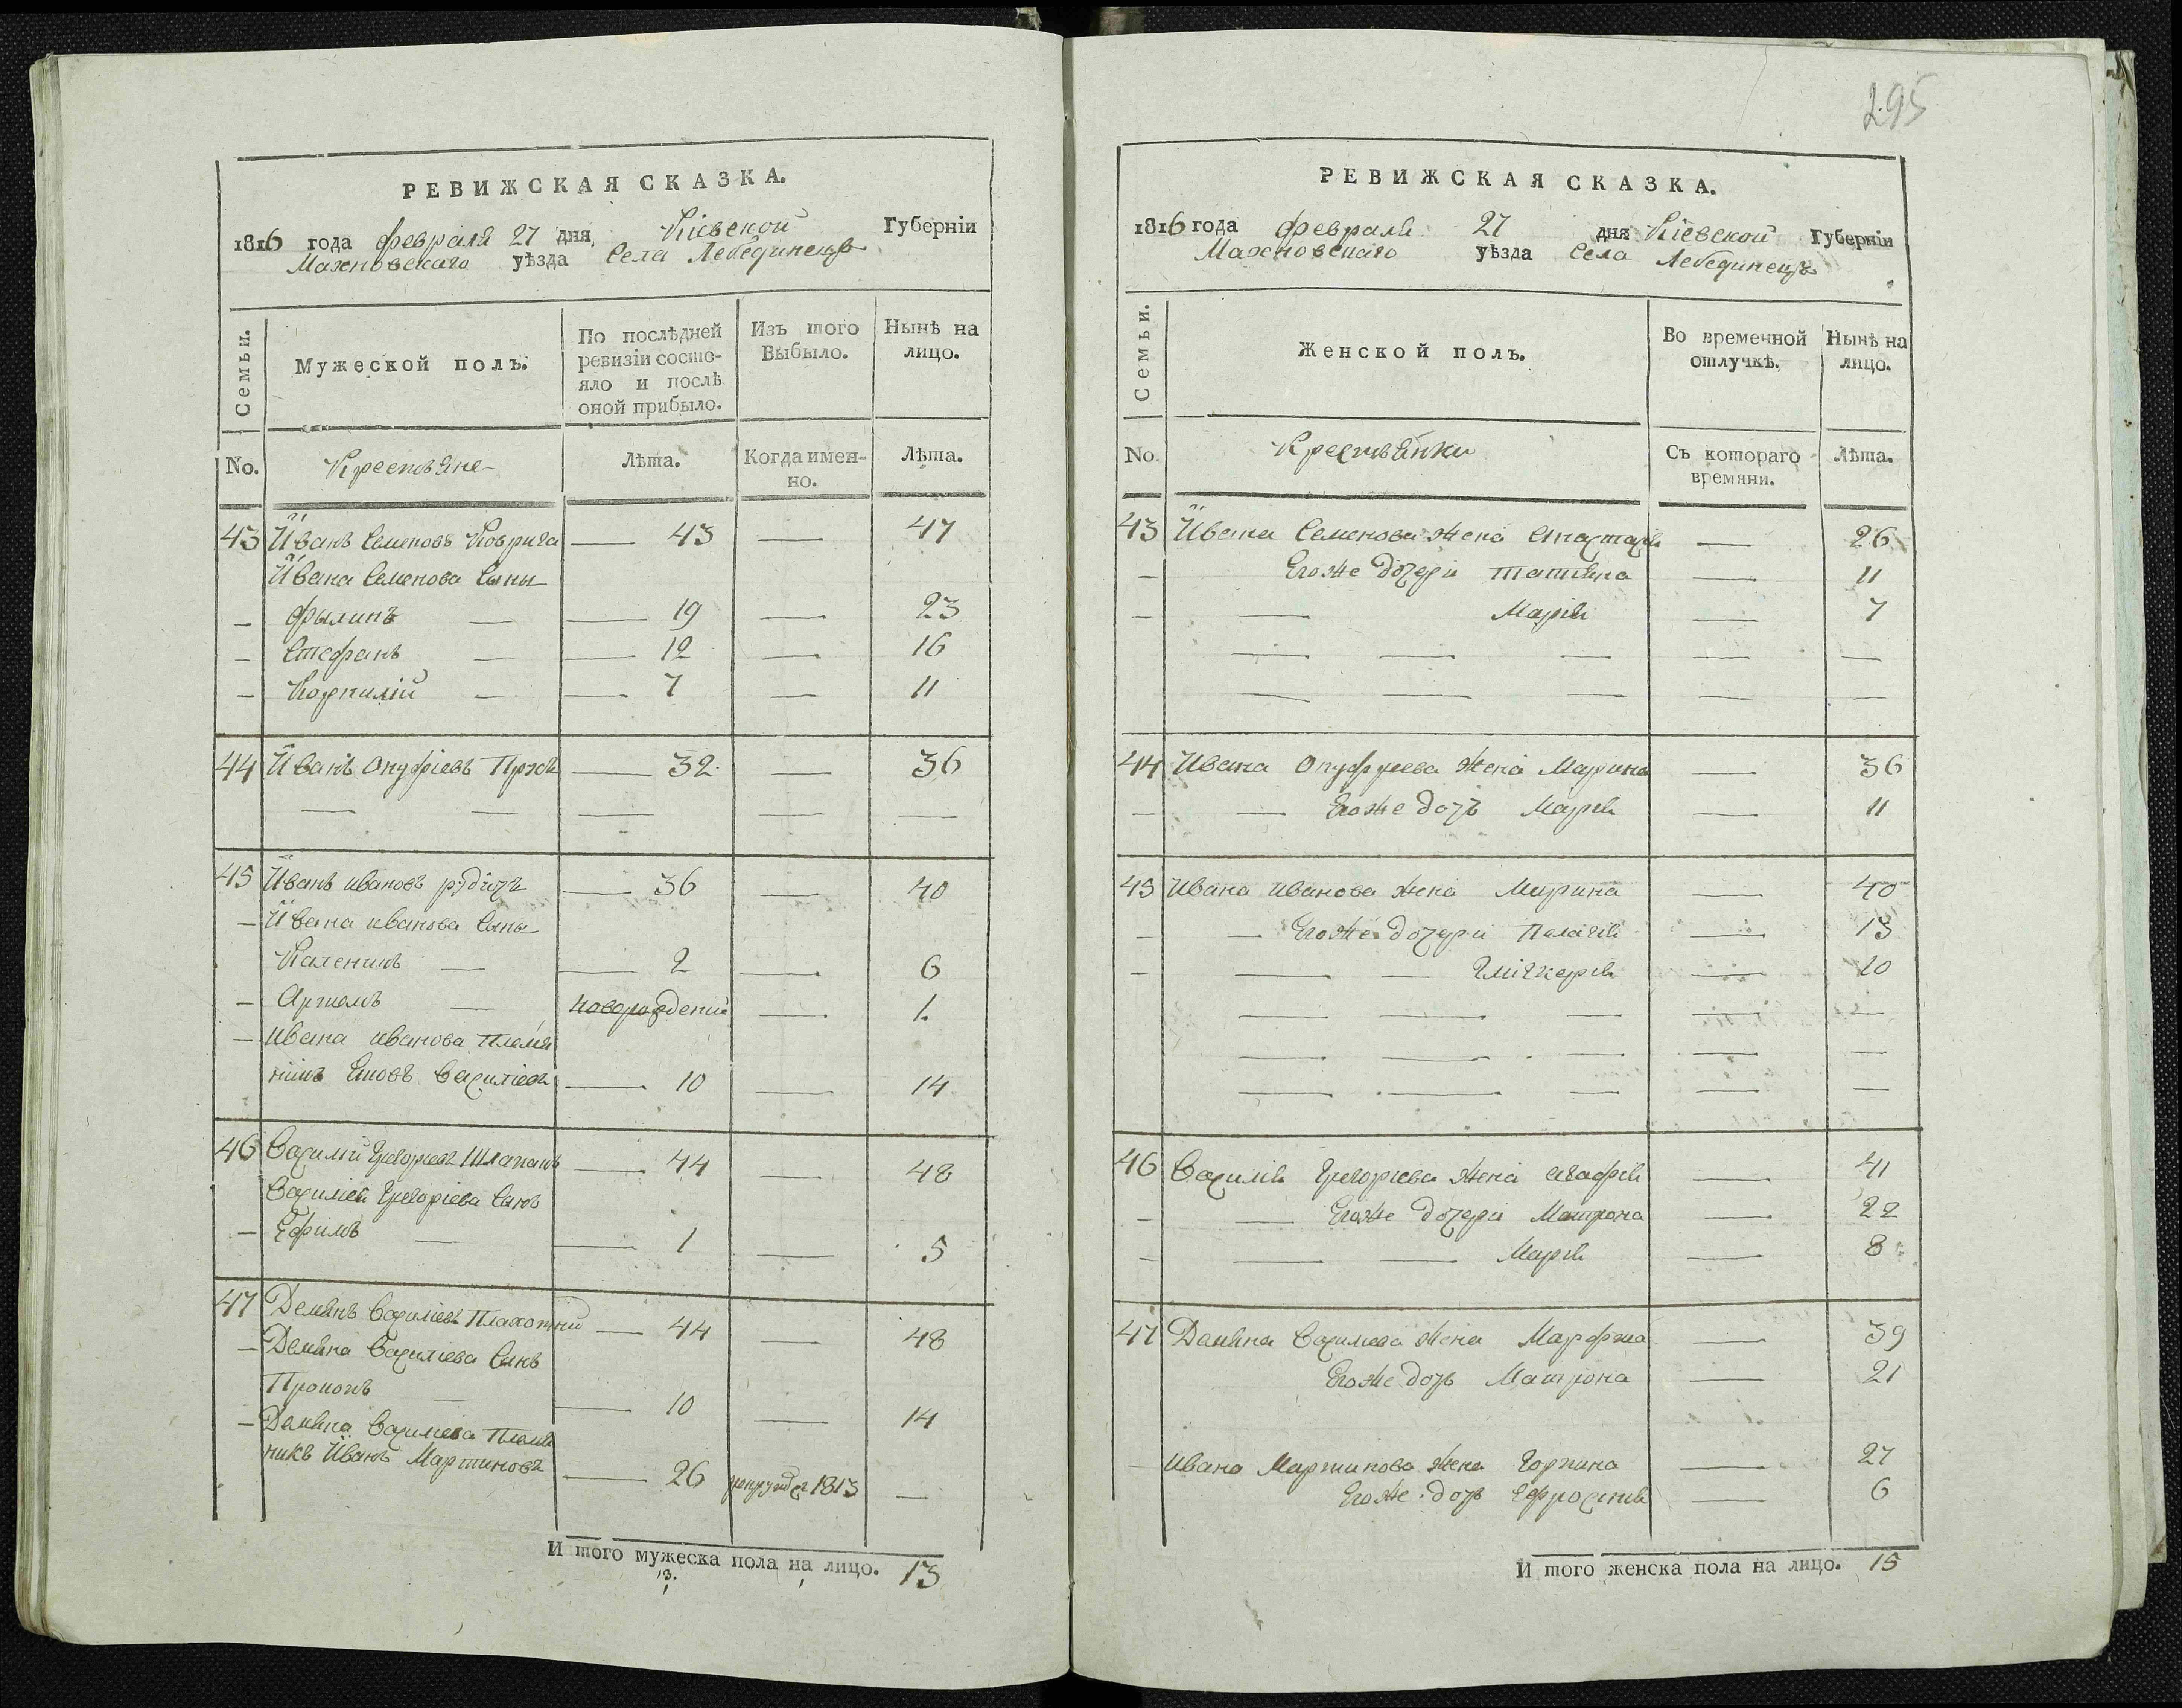 295
РЕВИЖСКАЯ СКАЗКА.
1816 года февраля 27 дня Кіевской Губерніи
Махновскаго уѣзда Села Лебединецъ
Семьи.
Мужеской полъ.
По послѣдней ревизіи состояло и послѣ оной прибыло.
Изъ того Выбыло.
Нынѣ на лицо.
No. Крестьяне Лѣта. Когда именно. Лѣта.
43 Иванъ Семеновъ Коврига — 43 — 47
Ивана Семенова Сыны
— Филипъ — — 19 — 23
— Стефанъ — — 12 — 16
— Корнилій — — 7 — 11
44 Иванъ Онуфріевъ — 32 — 36
— — — — —
45 Иванъ Ивановъ — 36 — 40
— Ивана Иванова Сыны
Каленикъ — — 2 — 6
— Артемъ — новорожденій — 1.
— Ивана Иванова Племя
никъ Яковъ Василіевъ — 10 — 14
46 Василій Григоріевъ Шлапакъ — 44 — 48
Василія Григоріева Сынъ
— Ефимъ — — 1 — 5
47 Демянъ Василіевъ Плахотній — 44 — 48
— Демяна Василіева Сынъ
Прокопъ — — 10 — 14
— Демяна Василіева Племя
никъ Иванъ Мартиновъ — 26 1813 —
И того мужеска пола на лицо. 13
13.
РЕВИЖСКАЯ СКАЗКА.
1816 года февраля 27 дня Кіевской Губерніи
Махновскаго уѣзда Села Лебединецъ
Семьи.
Женской полъ.
Во временной отлучкѣ.
Нынѣ на лицо.
No. Крестьянки Съ котораго времяни. Лѣта.
43 Ивана Семенова Жена — 26
— Егоже дочери Татьяна — 11
— — Марія — 7
— — — — —
— — — — —
44 Ивана Онуфріева Жена Марина — 36
— — Егоже дочь Марія — 11
45 Ивана Иванова Жена Марина — 40
— — Егоже дочери Палагія — 13
— — — Гликерія — 10
— — — — —
— — — — —
— — — — —
46 Василія Григоріева Жена Агафія — 41
— — Егоже дочери Матрона — 22
— — — Марія — 8
47 Демяна Василіева Жена Марфта — 39
Егоже дочь Матрона — 21
— Ивана Мартинова Жена Горпина — 27
Егоже дочь Ефросинія — 6
И того женска пола на лицо. 15